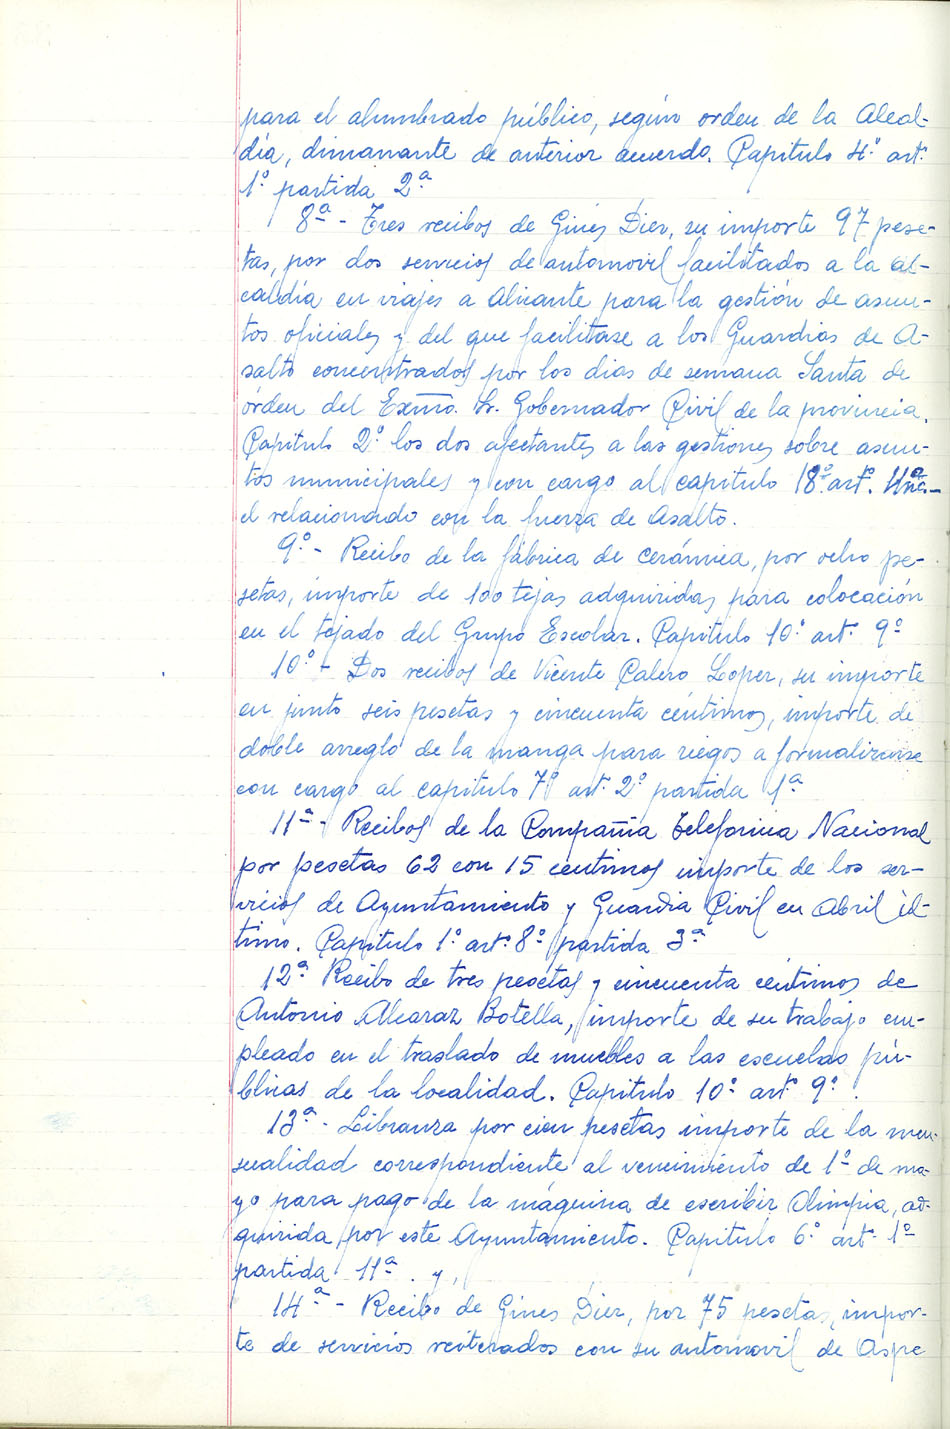 para el alumbrado público, según orden de la Alcal-
día, dimanante de anterior acuerdo. Capitulo 4.º art.º
1º partida 2ª
8ª - Tres recibos de Ginés Dier, su importe 97 pese-
tas, por dos servicios de automovil facilitados a la al-
caldía en viajes a Alicante para la gestión de asun-
tos oficiales y del que facilitase a los Guardias de A-
salto concentrados por los dias de semana Santa de
órden del Exmo. Sr. Gobernador Civil de la provincia.
Capitulo 2º los dos afectantes a las gestiones sobre asun-
tos municipales y con cargo al capitulo 18º art.
el relacionado con la fuerza de Asalto.
9.º - Recibo de la fábrica de cerámica, por ocho pe-
setas, importe de 100 tejas adquiridas para colocación
en el tejado del Grupo Escolar. Capitulo 10º art. 9º
10º - Dos recibos de Vicente Calero Loper, su importe
en junto seis pesetas y cincuenta céntimos, importe de
doble arreglo de la manga para riegos a formalizarse
con cargo al capitulo 7º art. 2º partida 1ª
11ª - Recibos de la Compañia Telefonica Nacional
por pesetas 62 con 15 centimos importe de los ser-
vicios de Ayuntamiento y Guardia Civil en Abril úl-
timo. Capitulo 1º art. 8º partida 3ª
12ª Recibo de tres pesetas y cincuenta céntimos de
Antonio Alcaraz Botella, importe de su trabajo em-
pleado en el traslado de muebles a las escuelas pú-
blicas de la localidad. Capitulo 10º art. 9º.
13ª - Libranza por cien pesetas importe de la men-
sualidad correspondiente al vencimiento de 1º de ma-
yo para pago de la máquina de escribir Olimpia, ad-
quirida por este Ayuntamiento. Capitulo 6º art. 1º
partida 11ª. y,
14ª - Recibo de Gines Dier, por 75 pesetas, impor-
te de servicios reiterados con su automovil de Aspe